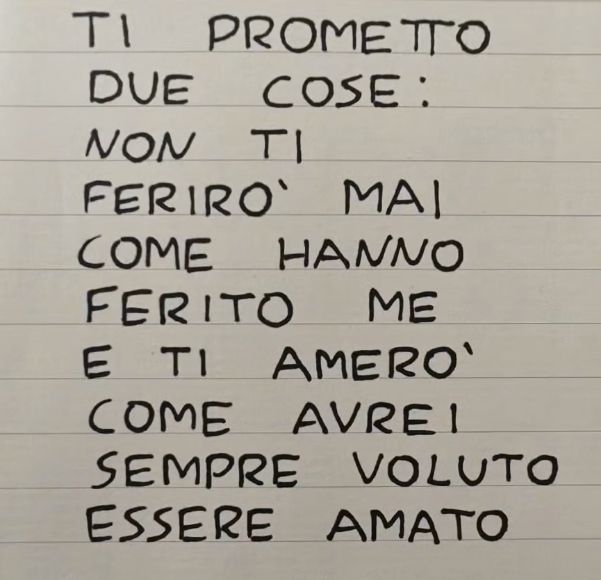 TI PROMETTO
DUE COSE:
NON TI
FERIRO` MAI
COME HANNO
FERITO ME
E TI AMERO`
COME AVREI
SEMPRE VOLUTO
ESSERE AMATO